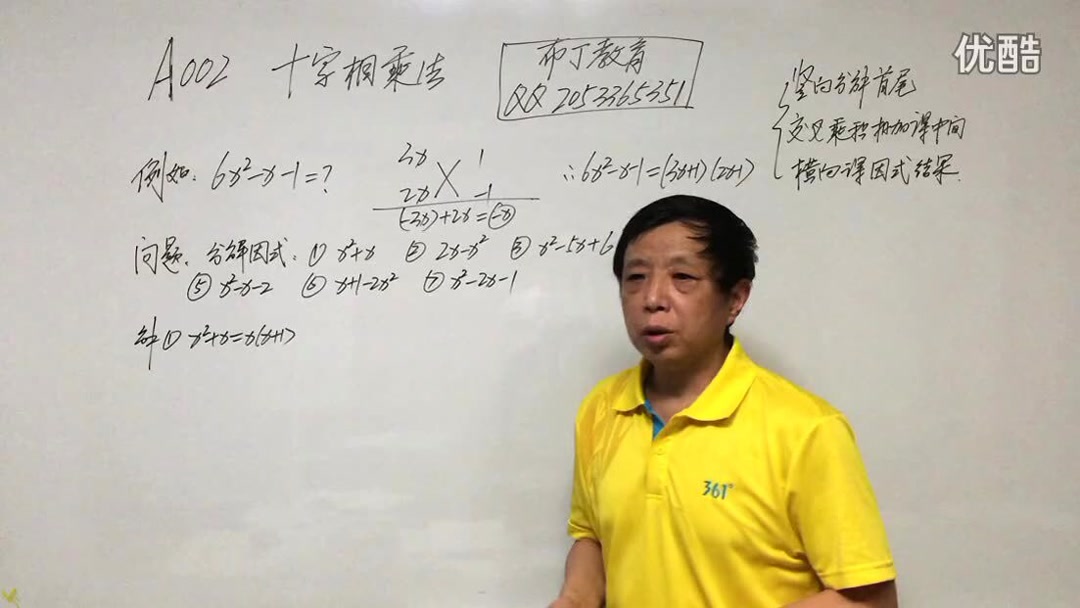 A002 十字相乘法
布丁教育
QQ 2053365351
竖向分解首尾
交叉乘积相加得中间
横向得因式结果.
例如: 6x²-x-1=?
3x 1
2x -1
(-3x)+2x=(-x)
∴6x²-x-1=(3x+1)(2x-1)
问题: 分解因式: ① x²+x ② 2x-x² ③ x²-5x+6
⑤ x²-x-2 ⑥ x+1-2x² ⑦ x²-2x-1
解① x²+x=x(x+1)
361°
优酷